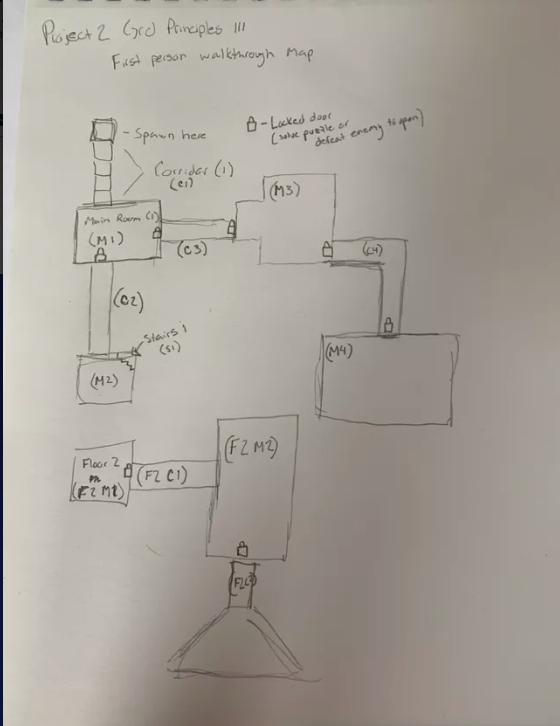 Project 2 Grd Principles III
First person walkthrough Map
- Spawn here
- Locked door
(solve puzzle or
defeat enemy to open)
Corridor (1)
(C1)
Main Room (1)
(M1)
(C3)
(M3)
(C4)
(C2)
Stairs 1
(S1)
(M2)
(M4)
Floor 2
(F2 M1)
(F2 C1)
(F2 M2)